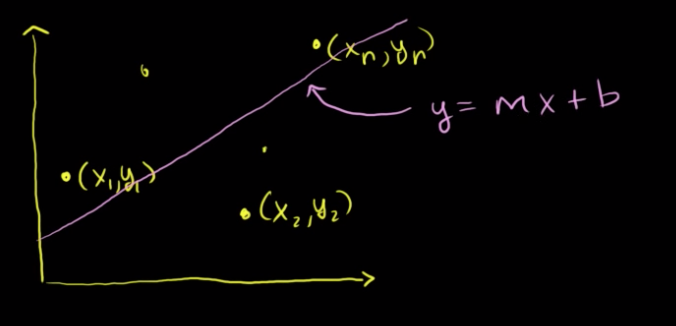 (xₙ, yₙ)
y = mx + b
(x₁, y₁)
(x₂, y₂)